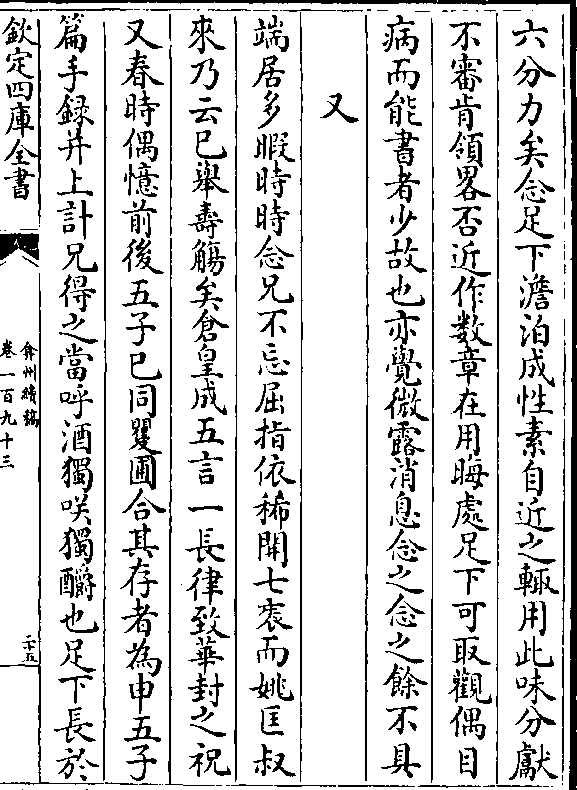 六分力矣念足下澹泊成性素自近之輙用此味分獻
不審肯領畧否近作数章在用晦處足下可取觀偶目
病而能書者少故也亦覺微露消息念之念之餘不具
又
端居多暇時時念兄不忘屈指依稀開七袠而姚匡叔
來乃云已舉壽觴矣倉皇成五言一長律致華封之祝
又春時偶憶前後五子已同矍圃合其存者為申五子
篇手録并上計兄得之當呼酒獨咲獨釂也足下長於
欽定四庫全書
弇州續稿
卷一百九十三
二十五